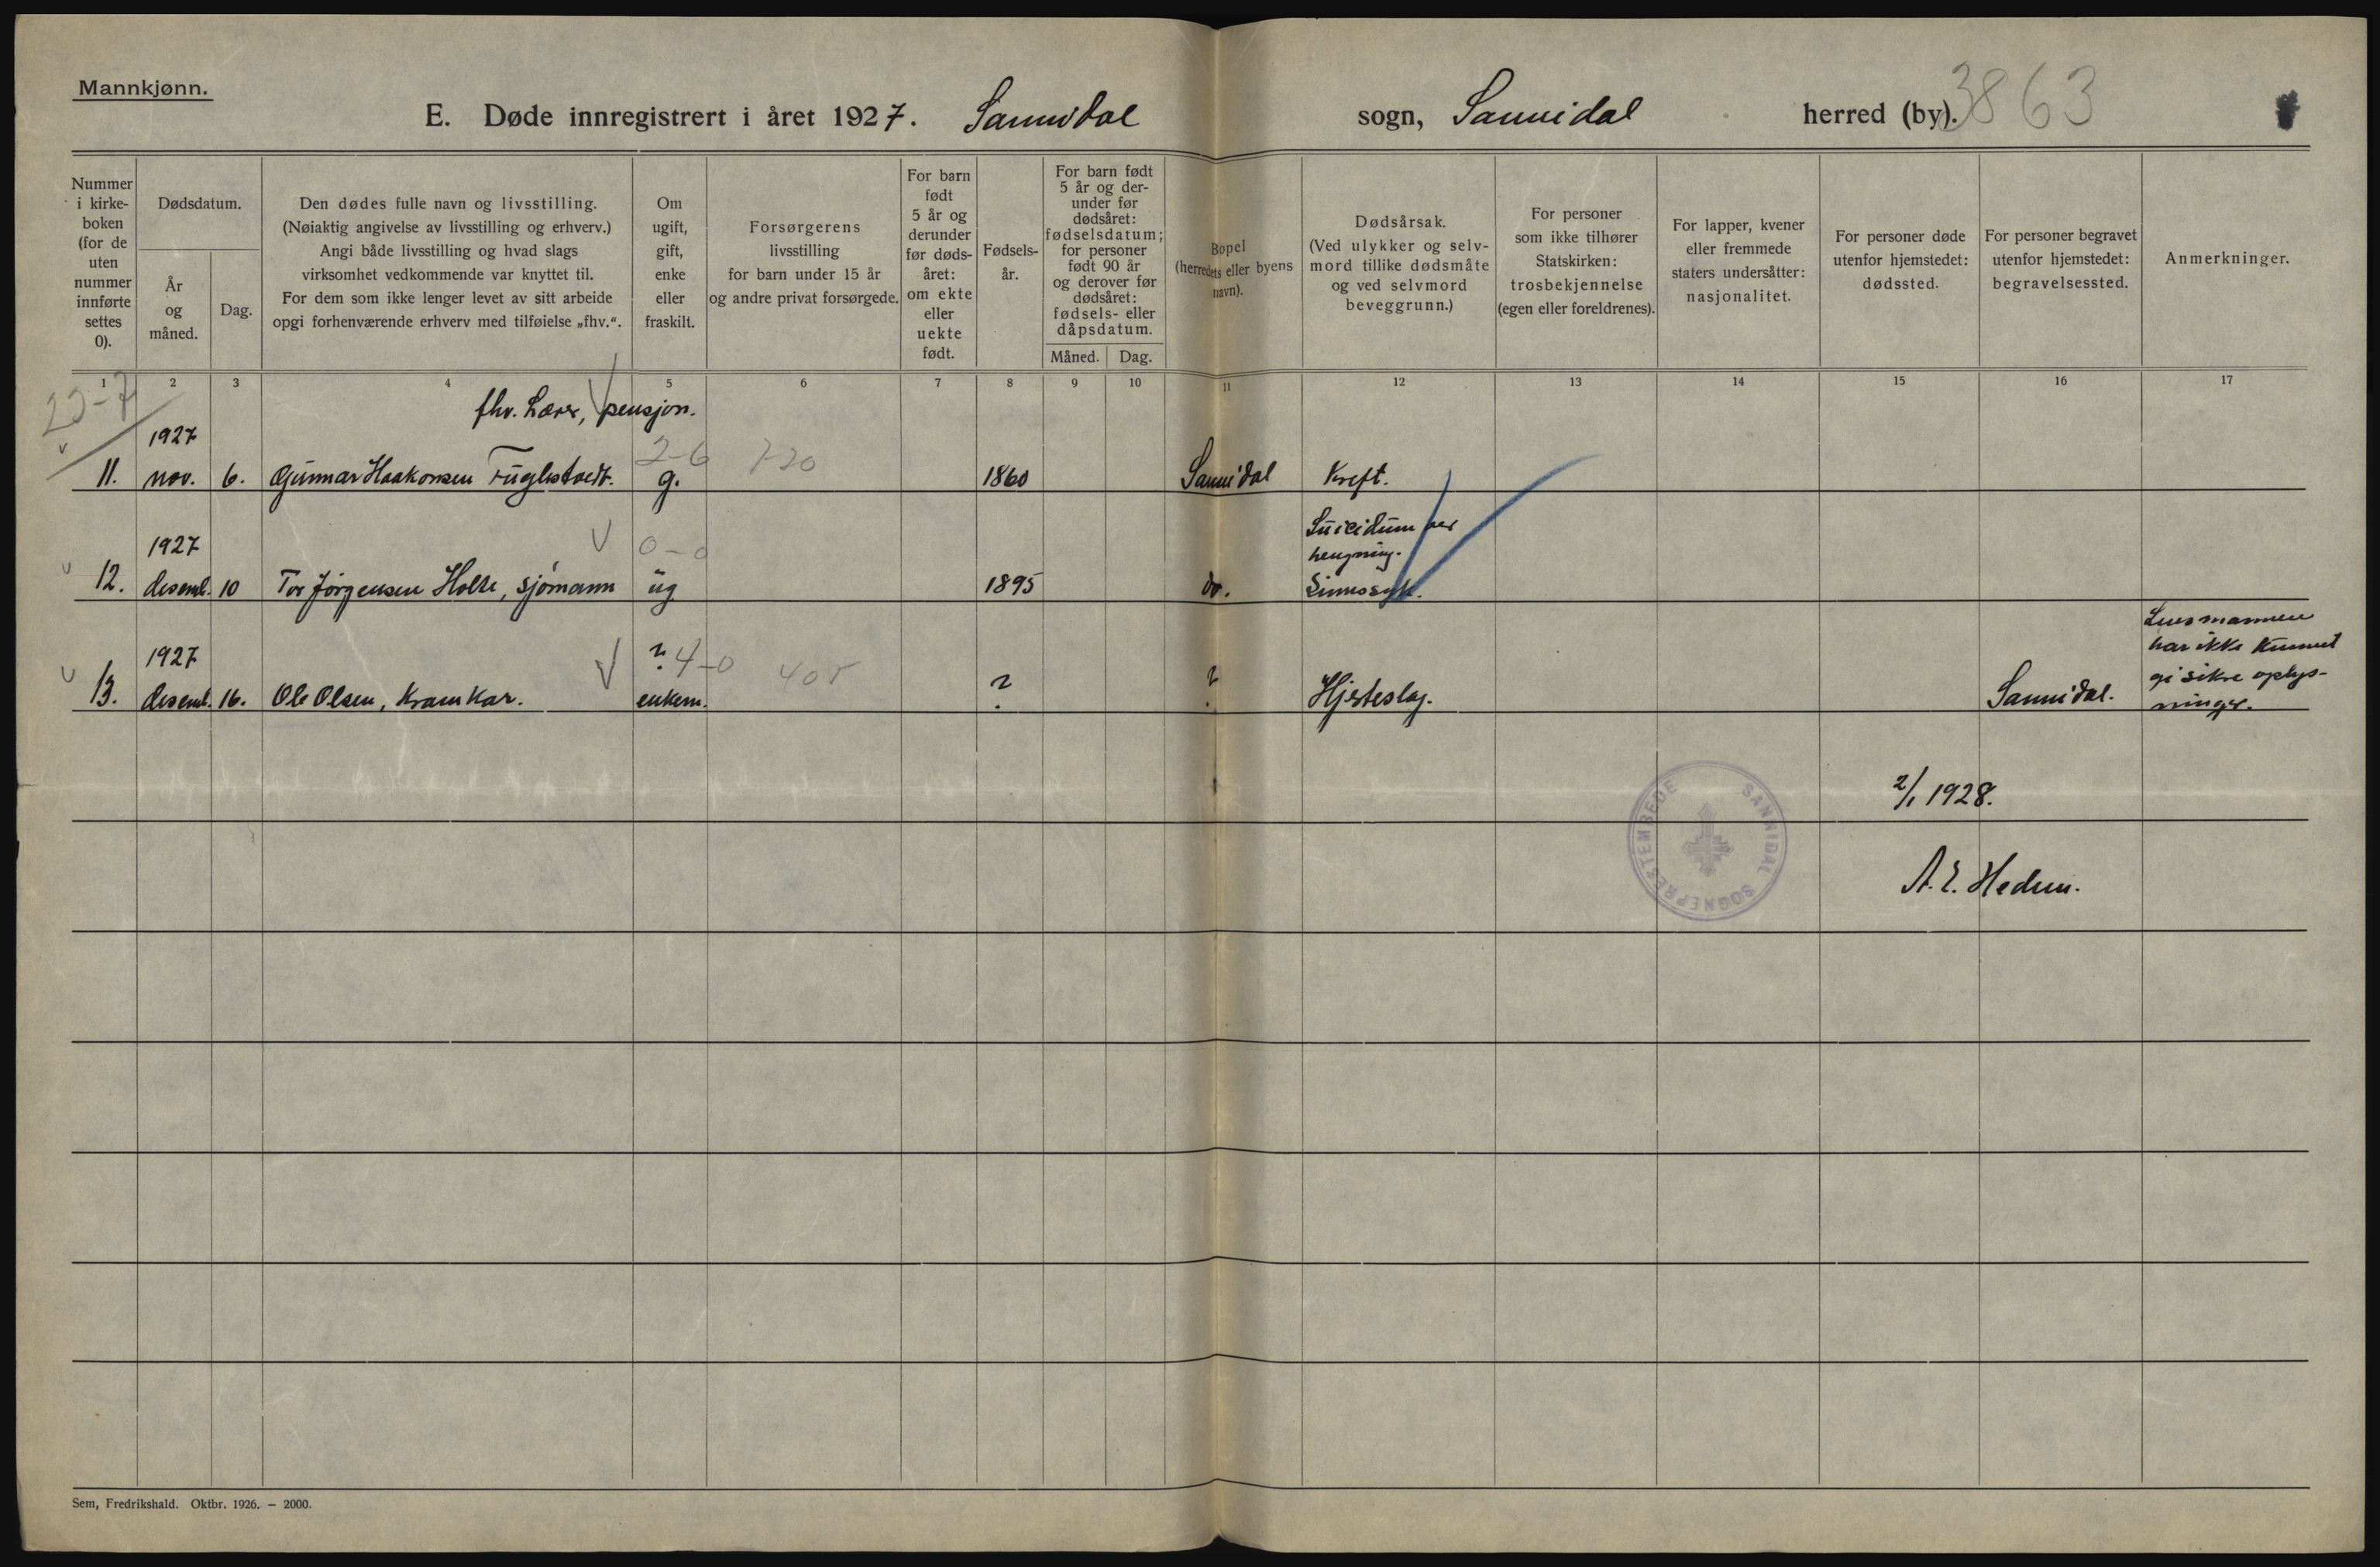 Mannkjønn.
E. Døde innregistrert i året 1927. Sannidal sogn, Sannidal herred (by). 3863
Nummer i kirke- boken (for de uten nummer innførte settes 0).
Dødsdatum.
År og måned.
Dag.
Den dødes fulle navn og livsstilling.
(Nøiaktig angivelse av livsstilling og erhverv.)
Angi både livsstilling og hvad slags
virksomhet vedkommende var knyttet til.
For dem som ikke lenger levet av sitt arbeide
opgi forhenværende erhverv med tilføielse „fhv.“.
Om ugift, gift, enke eller fraskilt.
Forsørgerens
livsstilling
for barn under 15 år
og andre privat forsørgede.
For barn født 5 år og derunder før døds- året: om ekte eller uekte født.
Fødsels- år.
For barn født 5 år og der- under før dødsåret: fødselsdatum; for personer født 90 år og derover før dødsåret: fødsels- eller dåpsdatum.
Måned. Dag.
Bopel
(herredets eller byens
navn).
Dødsårsak.
(Ved ulykker og selv-
mord tillike dødsmåte
og ved selvmord
beveggrunn.)
For personer
som ikke tilhører
Statskirken:
trosbekjennelse
(egen eller foreldrenes).
For lapper, kvener
eller fremmede
staters undersåtter:
nasjonalitet.
For personer døde
utenfor hjemstedet:
dødssted.
For personer begravet
utenfor hjemstedet:
begravelsessted.
Anmerkninger.
1 2 3 4 5 6 7 8 9 10 11 12 13 14 15 16 17
fhv. Lærer, pensjon.
1927
2-6 720
11. nov. 6. Gunnar Haakonsen Fuglestvedt. g. 1860 Sannidal Kreft.
1927
0-0
Suicidum per
hengning.
12. desemb. 10 Tor Jørgensen Holte, sjømann ug do. 1895 Sinnssyk.
1927
? 4-0 405
13. desemb. 16. Ole Olsen, Kramkar. enkem. ? ? Hjerteslag. Sannidal.
Lensmannen
har ikke kunnet
gi sikre oplys-
ninger.
2/1 1928.
SANNIDAL SOGNEPRESTEMBEDE
A. E. Hedem.
Sem, Fredrikshald. Oktbr. 1926. — 2000.